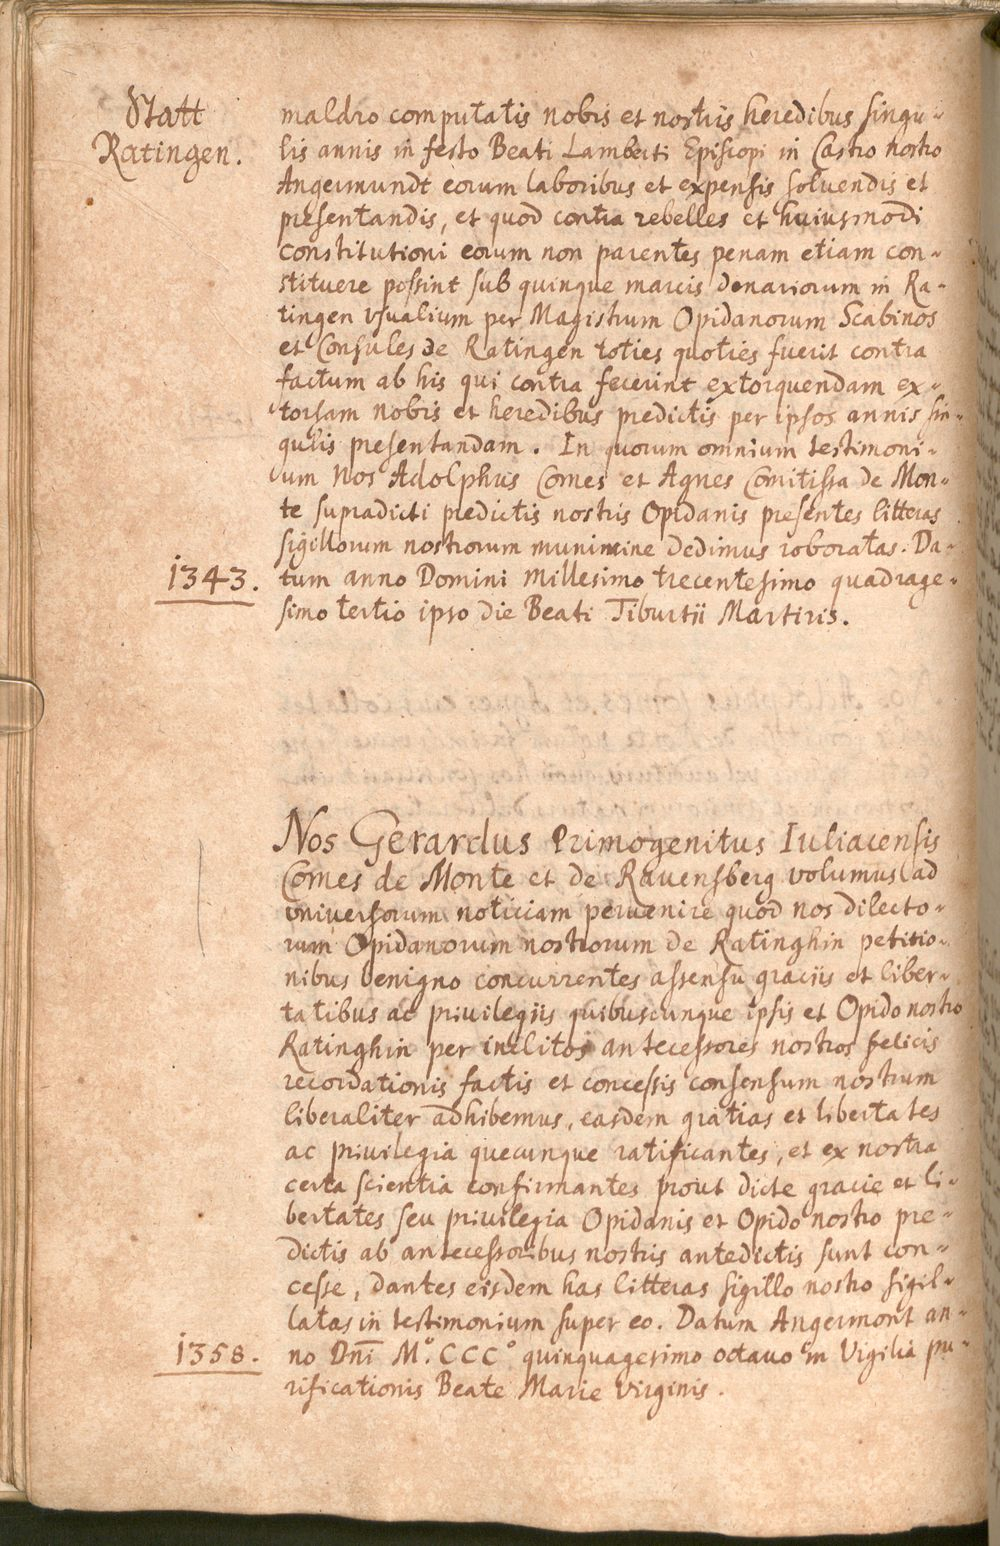 Statt
Ratingen.
maldro computatis nobis et nostris heredibus singu-
lis annis in festo Beati Lamberti Episcopi in Castro nostro
Angermundt eorum laboribus et expensis solvendis et
presentandis, et quod contra rebelles et huiusmodi
constitutioni eorum non parentes penam etiam con-
stituere possint sub quinque marcis denariorum in Ra-
tingen vsualium per Magistrum Opidanorum Scabinos
et Consules de Ratingen toties quoties fuerit contra
factum ab his qui contra fecerint extorquendam ex-
torsam nobis et heredibus predictis per ipsos annis sin-
gulis presentandam. In quorum omnium testimoni-
um Nos Adolphus Comes et Agnes Comitissa de Mon-
te supradicti predictis nostris Opidanis presentes litteras
sigillorum nostrorum munimine dedimus roboratas. Da-
1343.
tum anno Domini Millesimo trecentesimo quadrage-
simo tertio ipso die Beati Tiburtii Martiris.
Nos Gerardus Primogenitus Iuliacensis
Comes de Monte et de Rauensberg volumus ad
vniversorum noticiam pervenire quod nos dilecto-
rum Opidanorum nostrorum de Ratinghin petitio-
nibus benigno concurrentes assensu graciis et liber-
tatibus ac privilegiis quibuscunque ipsis et Opido nostro
Ratinghin per inclitos antecessores nostros felicis
recordationis factis et concessis consensum nostrum
liberaliter adhibemus, easdem gratias et libertates
ac privilegia quecunque ratificantes, et ex nostra
certa scientia confirmantes prout dicte gracie et li-
bertates seu privilegia Opidanis et Opido nostro pre-
dictis ab antecessoribus nostris antedictis sunt con-
cesse, dantes eisdem has litteras sigillo nostro sigil-
latas in testimonium super eo. Datum Angermont an-
1358.
no Dni M.º CCCº quinquagesimo octavo in Vigilia pu-
rificationis Beate Marie virginis.